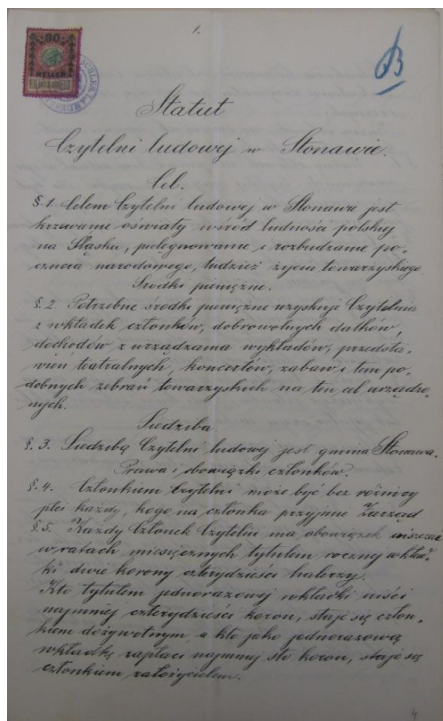 1.
30
HELLER
B
Statut
Czytelni ludowej w Stonawie.
Cel.
§ 1. Celem Czytelni ludowej w Stonawie jest
krzewienie oświaty wśród ludności polskiej
na Śląsku, pielęgnowanie i rozbudzanie po-
czucia narodowego, tudzież życia towarzyskiego.
Środki pieniężne.
§. 2 Potrzebne środki pieniężne uzyskuje Czytelnia
z wkładek członków, dobrowolnych datków,
dochodów z urządzania wykładów, przedsta-
wień teatralnych, koncertów, zabaw i tem po-
dobnych zebrań towarzyskich na ten cel urządzo-
nych.
Siedziba
§. 3. Siedzibą Czytelni ludowej jest gmina Stonawa.
Prawa i obowiązki członków.
§. 4. Członkiem Czytelni może być bez różnicy
płci każdy, kogo na członka przyjmie Zarząd
§ 5. Każdy Członek Czytelni ma obowiązek uiszczać
w ratach miesięcznych tytułem rocznej wkład-
ki dwie korony czterdzieści halerzy.
Kto tytułem jednorazowej wkładki uiści
najmniej czterdzieści koron, staje się człon-
kiem dożywotnym, a kto jako jednorazową
wkładkę zapłaci najmniej sto koron, staje się
członkiem założycielem.
4